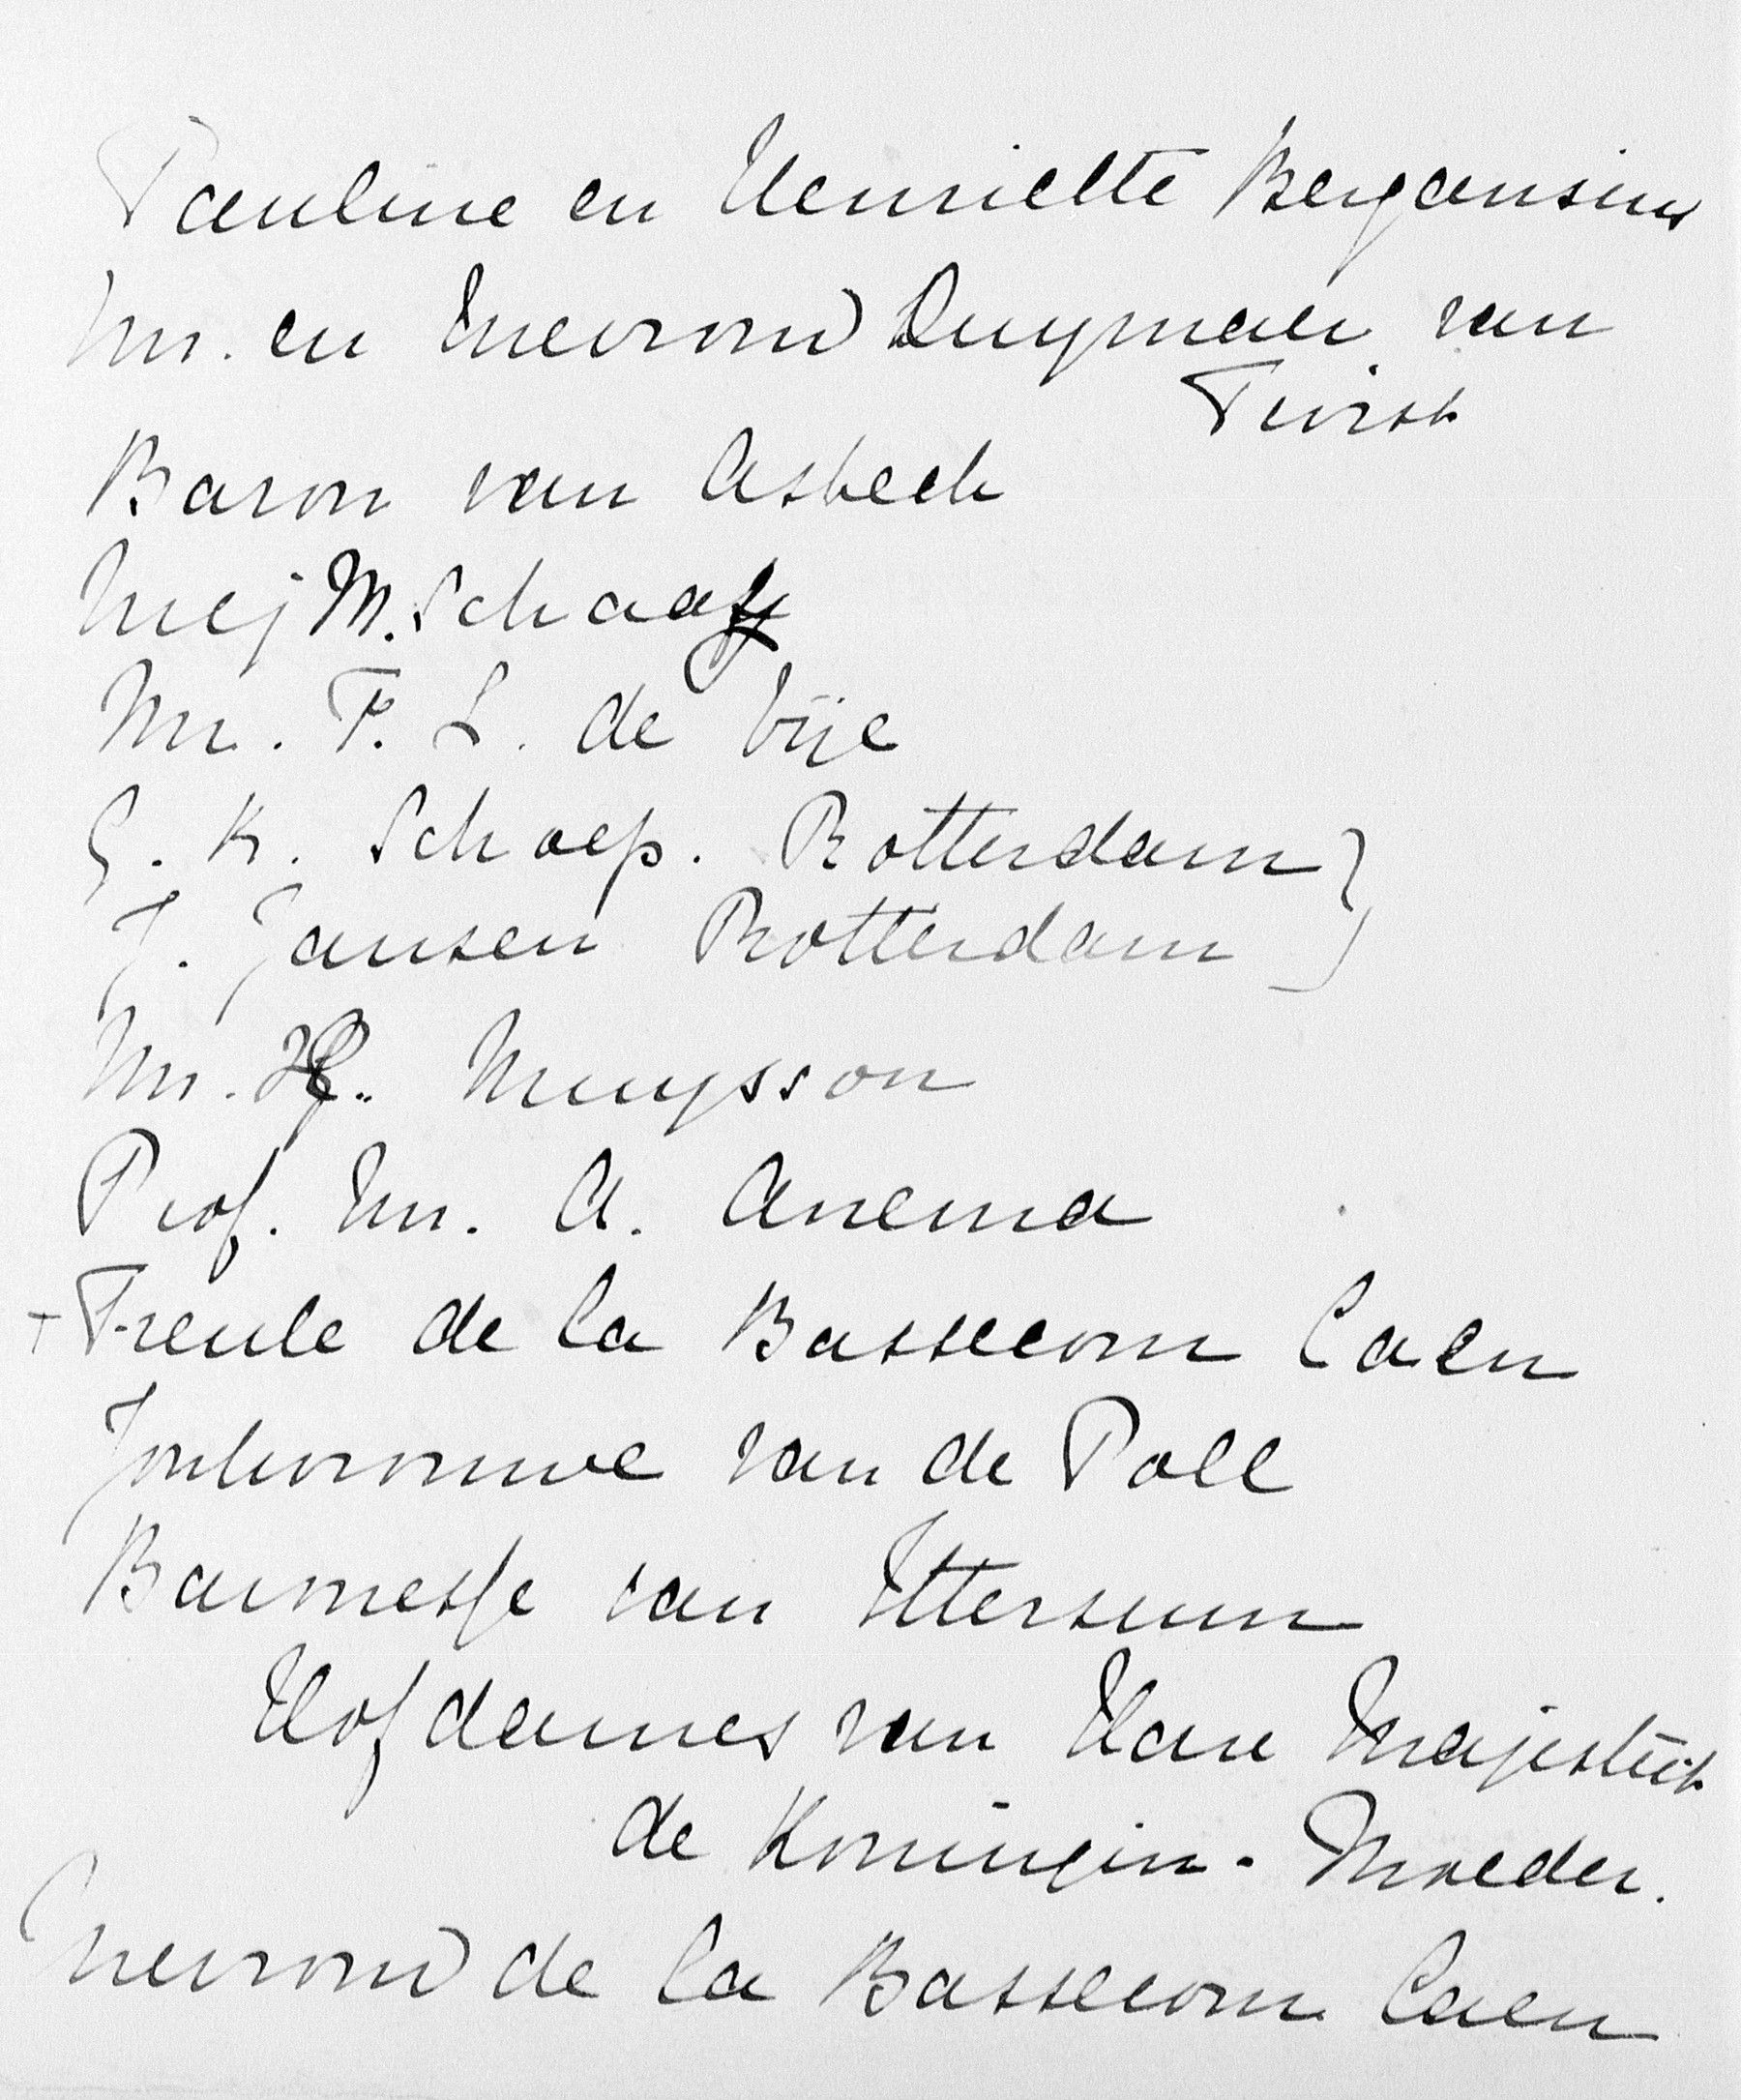 Pauline en Henriette Bergansius
Mr. en Mevrouw Duymaer van
Twist
Baron van Asbeck
Mej M. Schaaff
Mr. F. L. de Vije
G. K. Schoep. Rotterdam }
J. Jansen Rotterdam
Mr. Muysson
Prof. Mr. A. Anema
+ Freule de la Bassecour Caen
Jonkvrouwe van de Poll
Baronesse van Ittersum
Hofdames van Hare Majesteit
de Koningin-Moeder.
Mevrouw de la Bassecour Caen